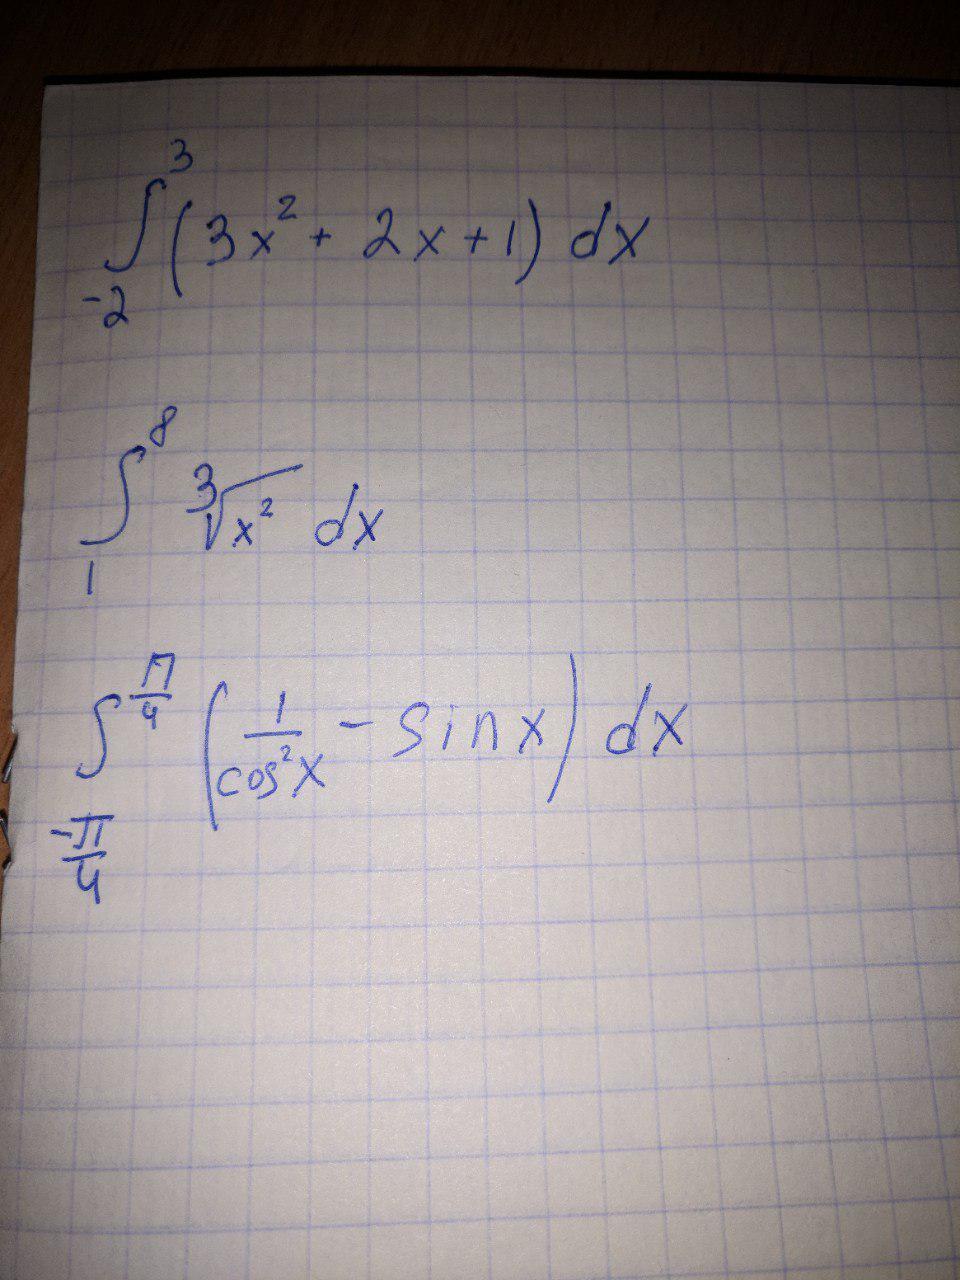 ∫_{-2}^{3} (3x² + 2x + 1) dx
∫_{1}^{8} ∛(x²) dx
∫_{-π/4}^{π/4} (1/cos²x - sin x) dx